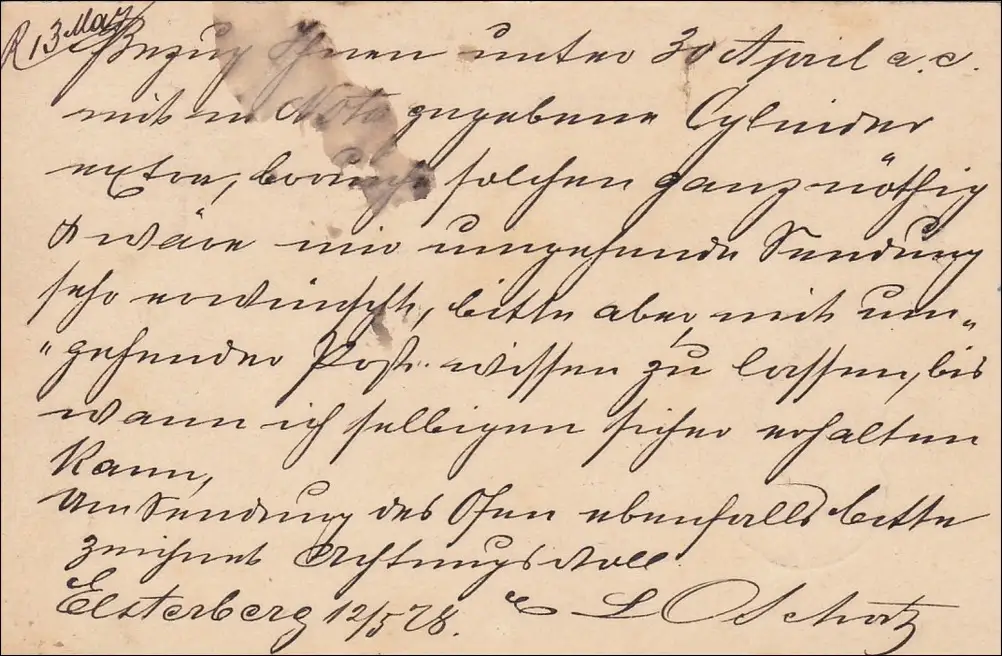 R 13 May
Bezug Ihnen unter 30 April a. c.
mit in Nota gegebene Cylinder
extra, brauche solchen ganz nöthig
& wäre mir umgehende Sendung
sehr erwünscht, bitte aber, mit um„
„gehender Post wissen zu lassen, bis
wann ich selbigen sicher erhalten
kann,
Um Sendung des Ofen ebenfalls bitte
zeichnet Achtungsvoll
Elsterberg 12/5 78.